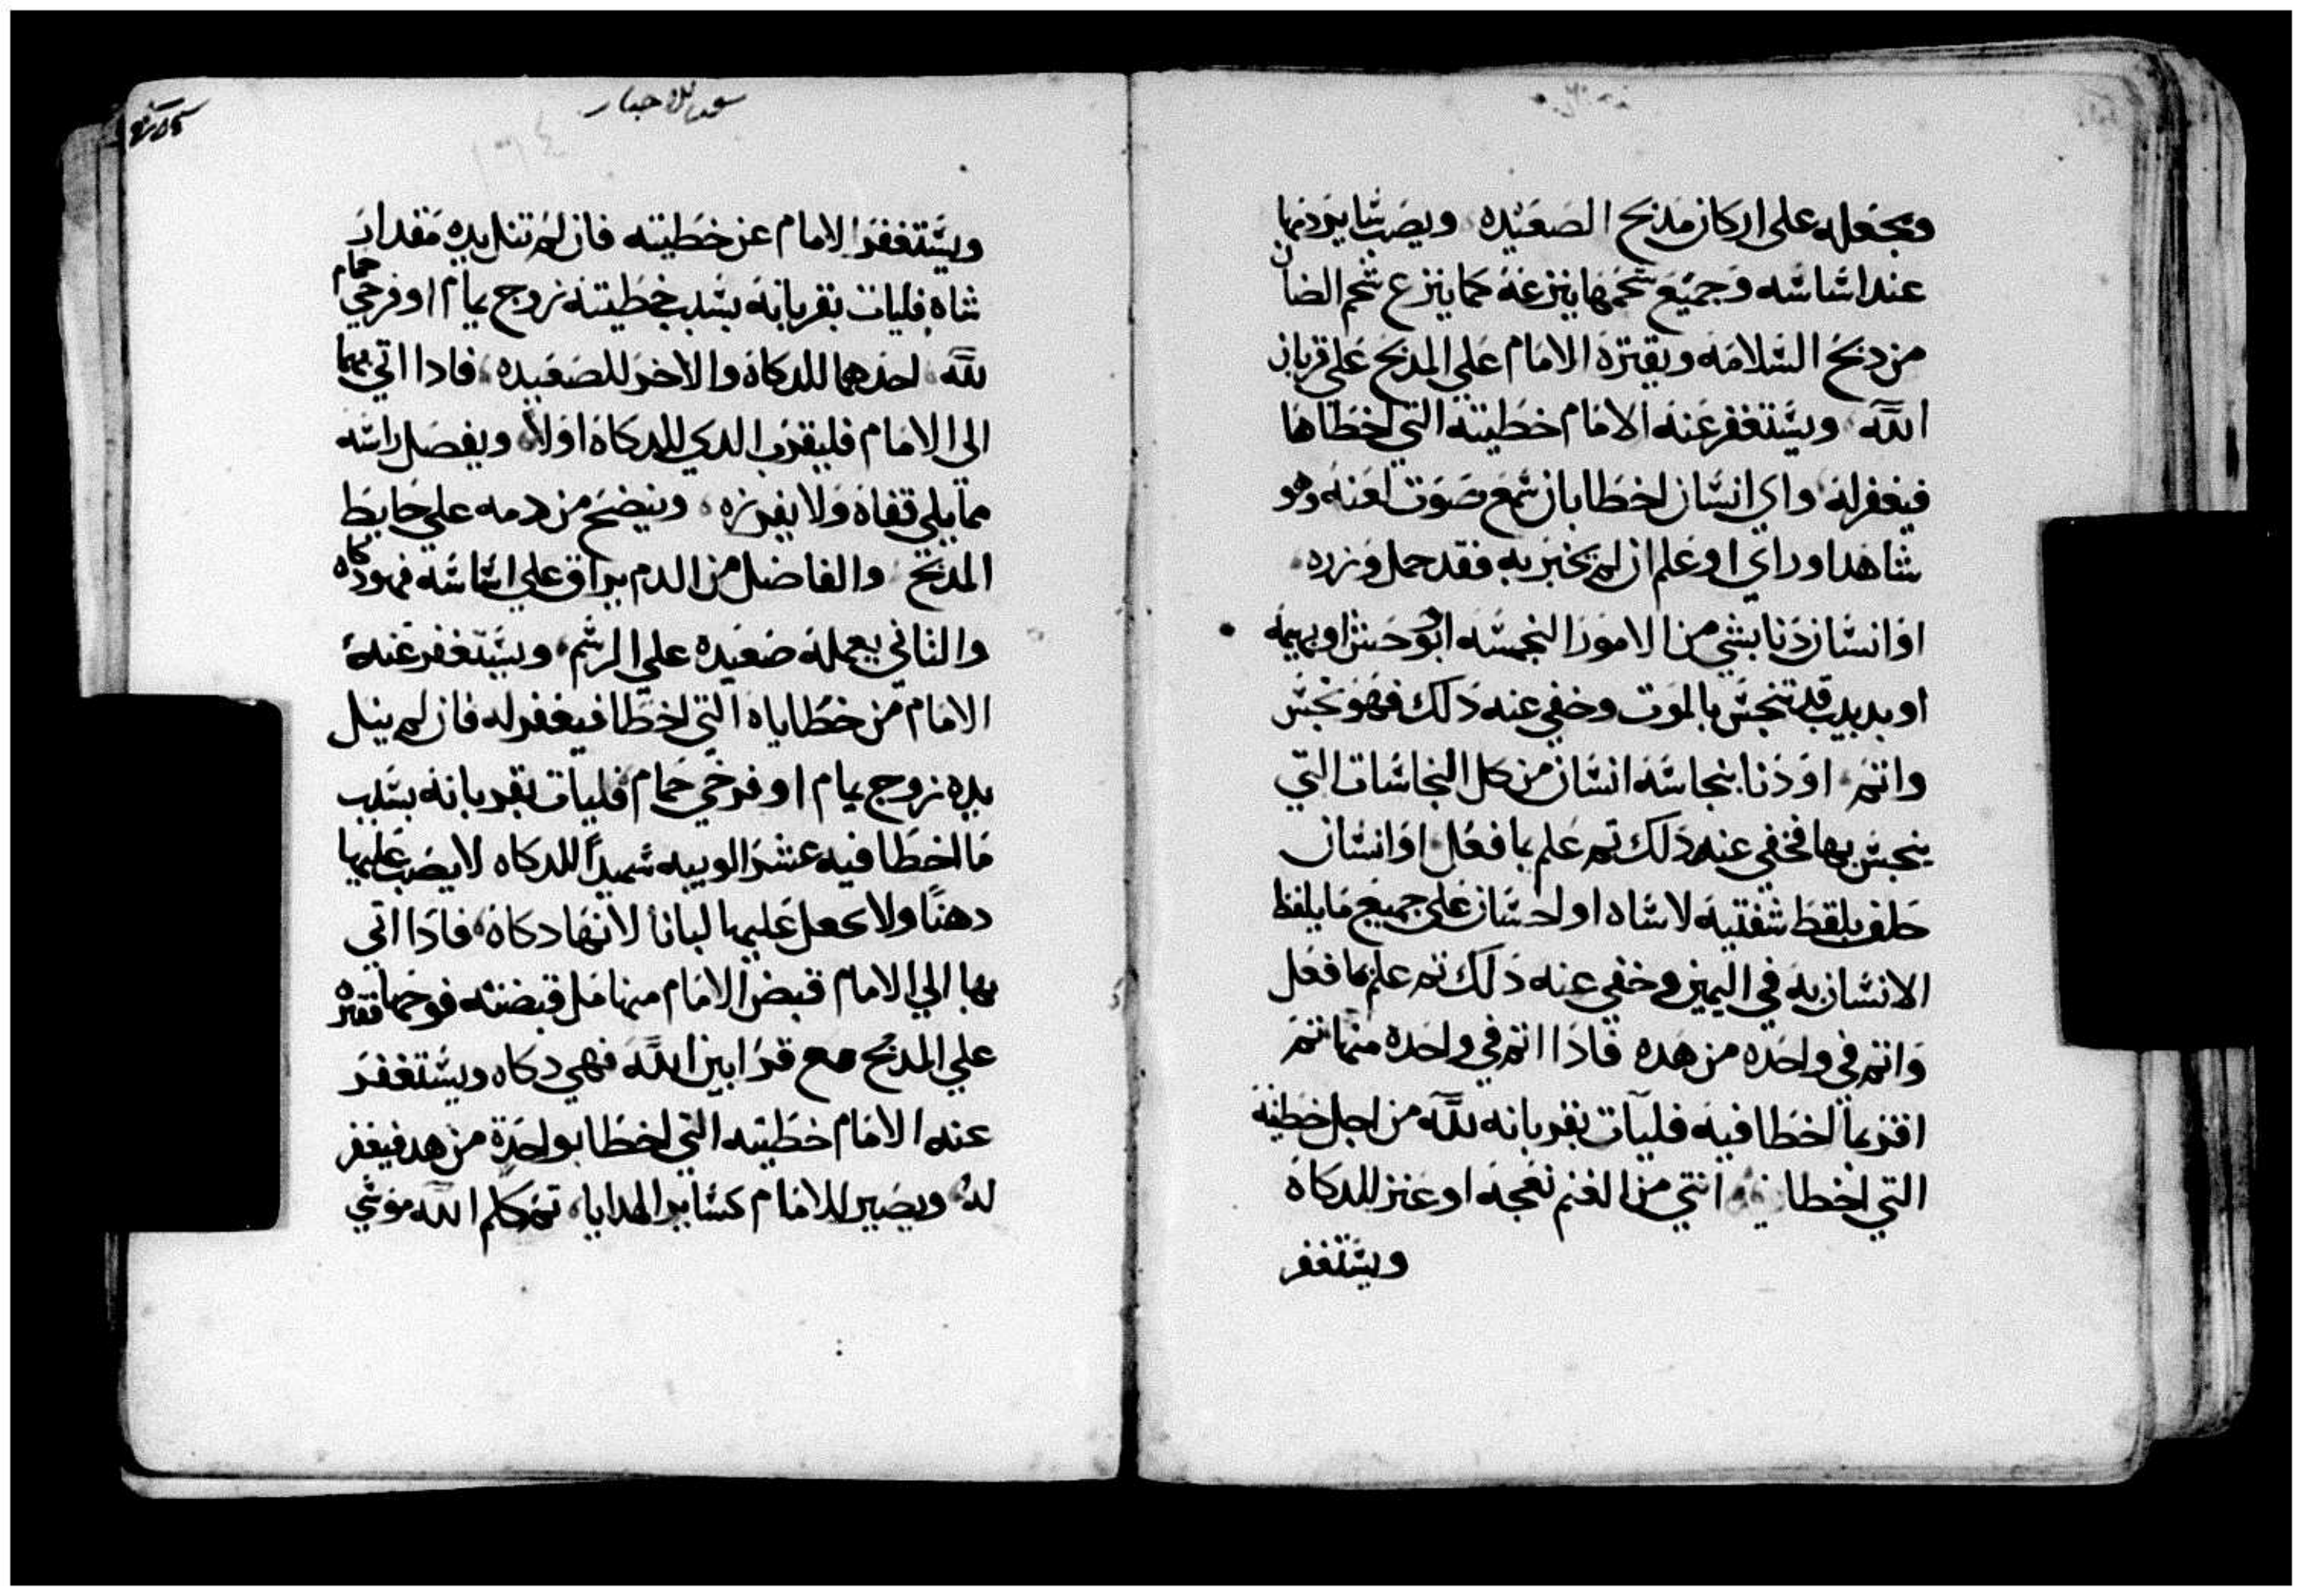 ويجعله على اركان مدبح الصعيده ويصب سايردمها
عند اساسه وجميع شحمها ينزعه كما ينزع شحم الضان
من دبح السلامه ويقتره الامام علي المدبح علي قربان
الله ويستغفر عنه الامام خطيته التي اخطاها
فيغفر له واي انسان اخطا بان سمع صوت لعنه وهو
شاهد او راي او علم ان لم يخبر به فقد حمل وزره
او انسان دنا بشي من الامور النجسه او وحش او بهيمه
او بدبيب قد تنجس بالموت وخفي عنه دلك فهو نجس
واتم او دنا بنجاسة انسان من كل النجاسات التي
ينجس بها فخفي عنه دلك تم علم بما فعل او انسان
حلف بلفظ شفتيه لاساه او احسان علي جميع ما يلفظ
الانسان به في اليمين وخفي عنه دلك تم علم بما فعل
واتم في واحده من هده فادا اتم في واحده منها تم
اقر بما اخطا فيه فليات بقربانه لله من اجل خطيته
التي اخطا انتي من الغنم نعجه او عنز للدكاه
ويستغفر
ويستغفر الامام عن خطيته فان لم تنل يده مقدار
شاه فليات بقربانه بسبب خطيته زوج يمام او فرخي حمام
لله احدهما للدكاه والاخر للصعيده فادا اتي بهما
الى الامام فليقرب الدي للدكاه اولا ويفصل راسه
مما يلي قفاه ولا يفرزه وينضح من دمه علي حايط
المدبح والفاضل من الدم يراق علي اساسه فهو دكاه
والتاني يعمله صعيده علي الرسم ويستغفر عنه
الامام من خطاياه التي اخطا فيغفر له فان لم ينل
يده زوج يمام او فرخي حمام فليات بقربانه بسبب
ما اخطا فيه عشر الويبه سميدا للدكاه لا يصب عليها
دهنا ولا يجعل عليها لبانا لانها دكاه فادا اتي
بها الي الامام قبض الامام منها مل قبضته فوخها فقتره
علي المدبح مع قرابين الله فهي دكاه ويستغفر
عنه الامام خطيته التي اخطا بواحدة من هد فيغفر
له ويصير للامام كساير الهدايا تم كلم الله موسي